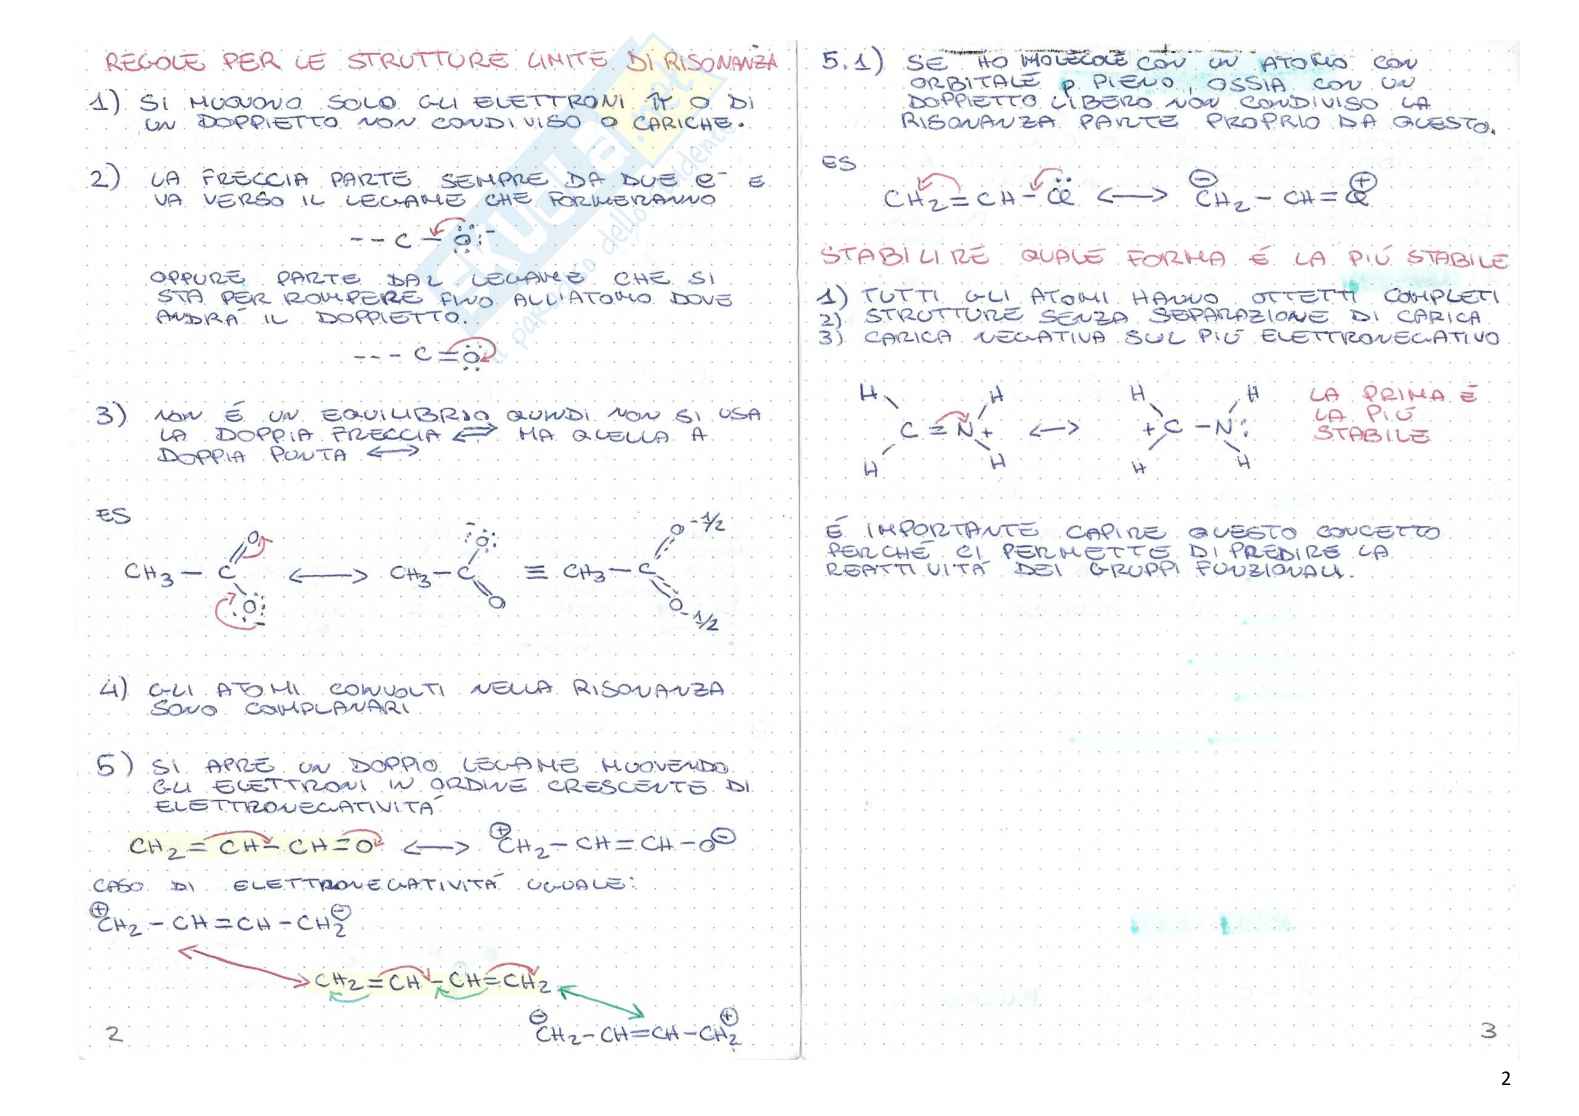 REGOLE PER LE STRUTTURE LIMITE DI RISONANZA
1) SI MUOVONO SOLO GLI ELETTRONI π O DI
UN DOPPIETTO NON CONDIVISO O CARICHE.
2) LA FRECCIA PARTE SEMPRE DA DUE e⁻ E
VA VERSO IL LEGAME CHE FORMERANNO
-- C – O:⁻
OPPURE PARTE DAL LEGAME CHE SI
STA PER ROMPERE FINO ALL'ATOMO DOVE
ANDRÁ IL DOPPIETTO.
--- C = O
3) NON É UN EQUILIBRIO QUINDI NON SI USA
LA DOPPIA FRECCIA ⇌ MA QUELLA A
DOPPIA PUNTA ⟷
ES
CH3 – C O O – ⟷ CH3 – C O – O ≡ CH3 – C O -1/2 O -1/2
4) GLI ATOMI CONVOLTI NELLA RISONANZA
SONO COMPLANARI
5) SI APRE UN DOPPIO LEGAME MUOVENDO
GLI ELETTRONI IN ORDINE CRESCENTE DI
ELETTRONEGATIVITÁ
CH2 = CH – CH = O ⟷ ⊕CH2 – CH = CH – O⊖
CASO DI ELETTRONEGATIVITÁ UGUALE:
⊕CH2 – CH = CH – CH2⊖
CH2 = CH – CH = CH2
⊖CH2 – CH = CH – CH2⊕
2
5.1) SE HO MOLECOLE CON UN ATOMO CON
ORBITALE p PIENO, OSSIA CON UN
DOPPIETTO LIBERO NON CONDIVISO LA
RISONANZA PARTE PROPRIO DA QUESTO.
ES
CH2 = CH – Cl ⟷ ⊖CH2 – CH = Cl⊕
STABILIRE QUALE FORMA É LA PIÚ STABILE
1) TUTTI GLI ATOMI HANNO OTTETTI COMPLETI
2) STRUTTURE SENZA SEPARAZIONE DI CARICA
3) CARICA NEGATIVA SUL PIÚ ELETTRONEGATIVO
H H H H
C = N+ ⟷ +C – N:
H H H H
LA PRIMA É
LA PIÚ
STABILE
É IMPORTANTE CAPIRE QUESTO CONCETTO
PERCHÉ CI PERMETTE DI PREDIRE LA
REATTIVITÁ DEI GRUPPI FUNZIONALI.
3
2